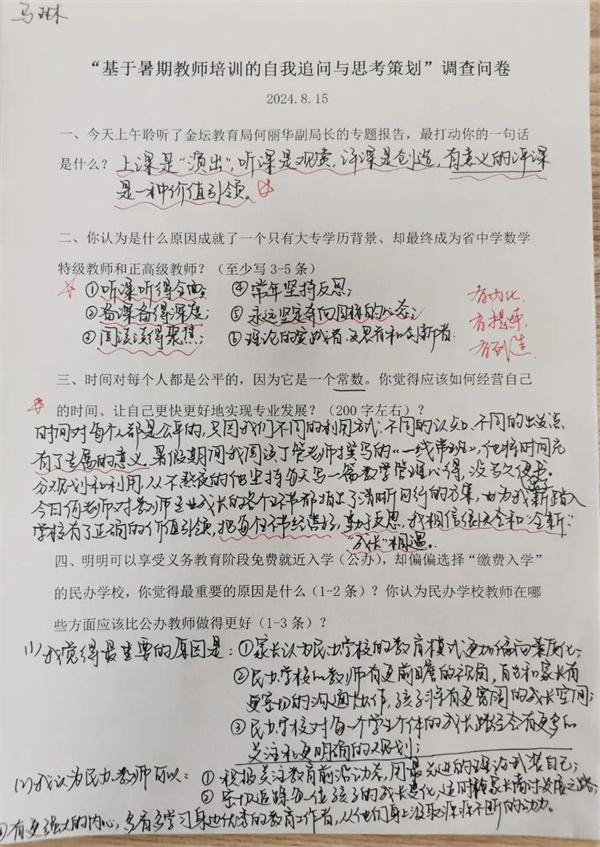 马琳
“基于暑期教师培训的自我追问与思考策划”调查问卷
2024.8.15
一、今天上午聆听了金坛教育局何丽华副局长的专题报告，最打动你的一句话
是什么？上课是“演出”，听课是观赏，评课是创造，有意义的评课
是一种价值引领。
二、你认为是什么原因成就了一个只有大专学历背景、却最终成为省中学数学
特级教师和正高级教师？（至少写3-5条）
①听课听得全面； ④常年坚持反思；
②备课备得深度； ⑤永远坚定有向目标的心态；
③阅读读得聚焦； ⑥理论的实战者，又是有和创新者.
有内化
有提炼
有创造
三、时间对每个人都是公平的，因为它是一个常数。你觉得应该如何经营自己
的时间、让自己更快更好地实现专业发展？（200字左右）？
时间对每个人都是公平的，只因我们不同的利用方式、不同的认知、不同的出发点
有了专属的意义。暑假期间我阅读了管老师撰写的“一线带班”，他将时间充
分规划和利用，从不熬夜的他坚持每天写一篇教学管理心得，没有欠债。
今日何老师对教师专业成长的各个环节都指上了清晰可行的方案，也为我新踏入
学校有了正确的价值引领，把每个环节经营好，勤反思，我相信很快会和“全新”
成长“相遇。
四、明明可以享受义务教育阶段免费就近入学（公办），却偏偏选择“缴费入学”
的民办学校，你觉得最重要的原因是什么（1-2条）？你认为民办学校教师在哪
些方面应该比公办教师做得更好（1-3条）？
(1)我觉得最重要的原因是：①家长认为民办学校的教育模式更加偏向素质化；
②民办学校的教师有更前瞻的视角，且也和家长有
更密切的沟通协作，孩子将有更宽阔的成长空间；
③民办学校对每一个学生个体的成长路径会有更多的
关注和更明确的规划；
(2)我认为民办教师可以：①积极关注教育前沿动态，用最先进的理论武装自己；
②密切追踪每一位孩子的成长变化，适时和家长商讨发展之路；
③有更强大的内心，多看多学习身边优秀的教育工作者，从他们身上汲取源源不断的动力。